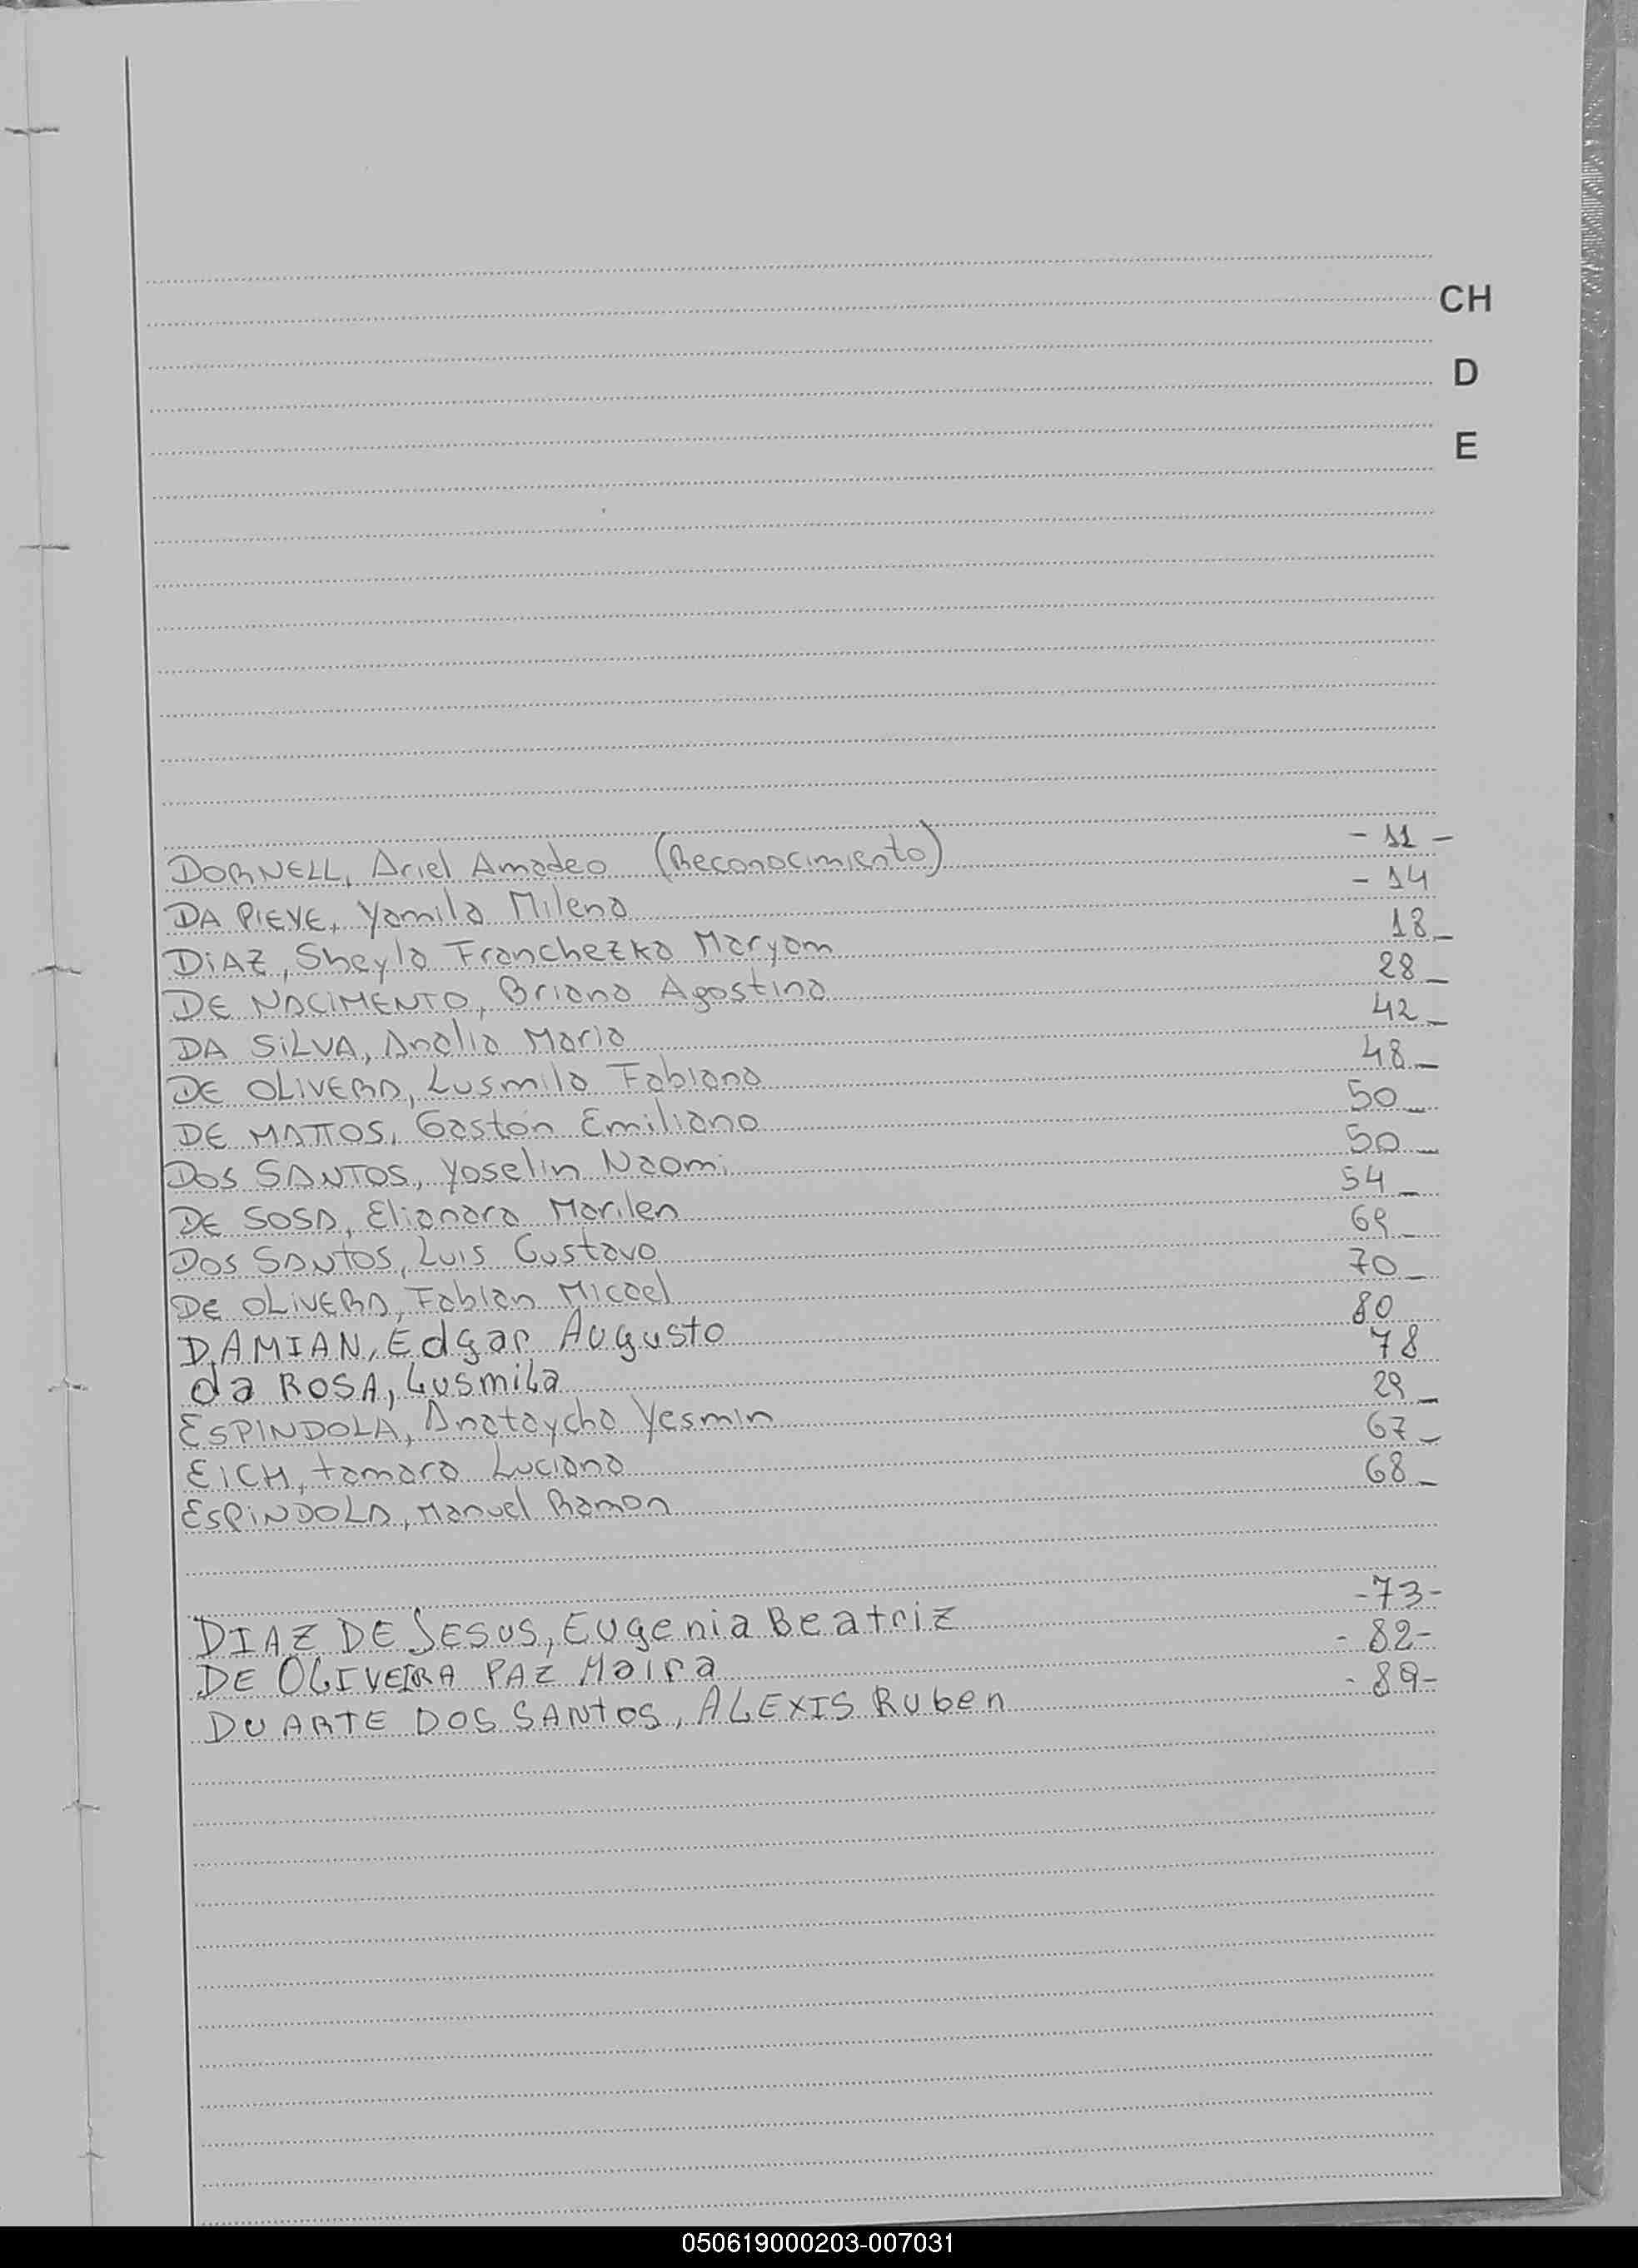 CH
D
E
DORNELL, Ariel Amadeo (Reconocimiento) - 11 -
DA PIEVE, Yamila Milena - 14
DiAZ, Sheyla Franchezka Maryam 18_
DE NACIMENTO, Briana Agostina 28_
DA SiLVA, Analia Maria 42_
DE OLIVERA, Lusmila Fabiana 48_
DE MATTOS, Gastón Emiliano 50_
DOS SANTOS, Yoselin Naomi 50_
DE SOSA, Elianara Marilen 54_
DOS SANTOS, Luis Gustavo 69_
DE OLIVERA, Fabian Micael 70_
DAMIAN, Edgar Augusto 80
da ROSA, Lusmila 78
ESPINDOLA, Anataycha Yesmin 29_
EICH, tamara Luciana 67_
ESPINDOLA, Manuel Ramon 68_
DIAZ DE JESUS, Eugenia Beatriz -73-
DE OLIVEIRA PAZ Maira - 82-
DUARTE DOS SANtos, ALEXIS Ruben - 89-
050619000203-007031